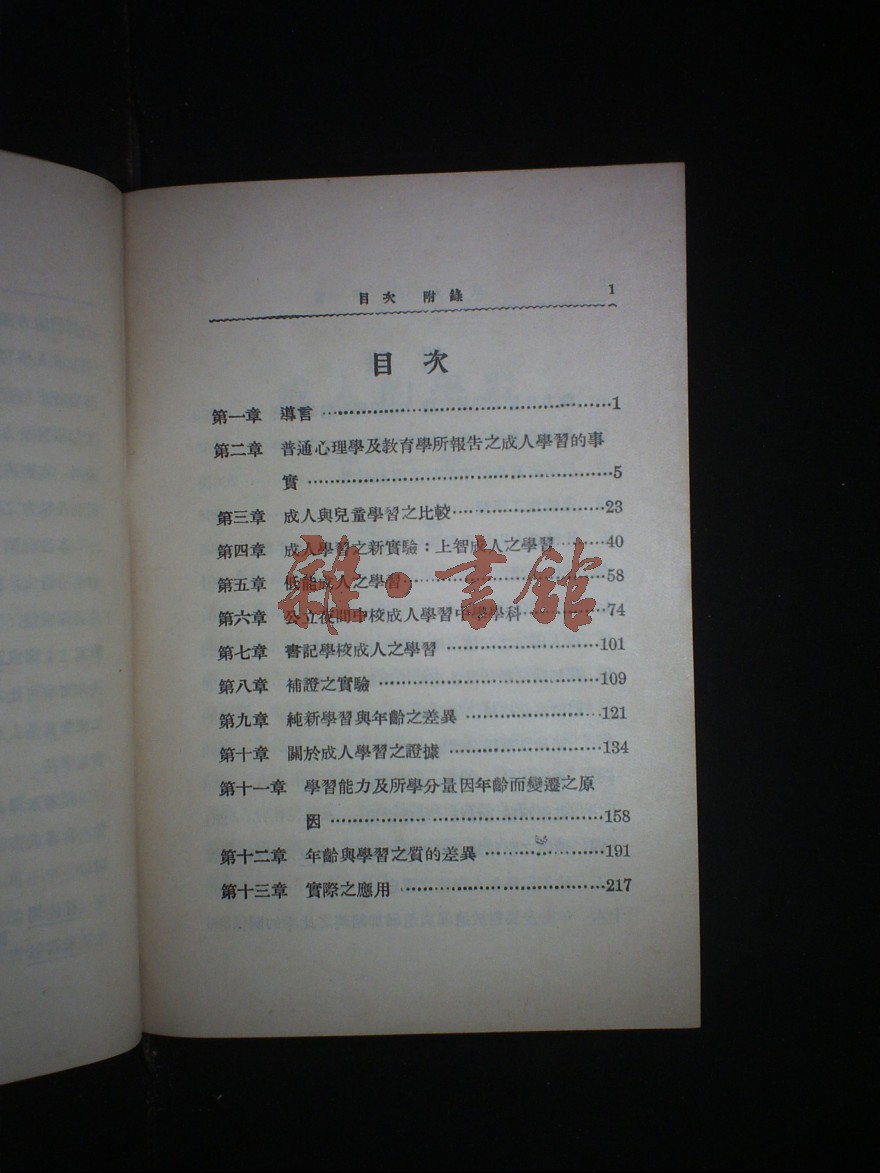 目次 附錄 1
目次
第一章 導言 ·······························1
第二章 普通心理學及教育學所報告之成人學習的事
實 ·······························5
第三章 成人與兒童學習之比較·······················23
第四章 成人學習之新實驗：上智成人之學習·········40
第五章 低能成人之學習·······················58
第六章 公立夜間中校成人學習中學學科·············74
第七章 書記學校成人之學習·······················101
第八章 補證之實驗·······························109
第九章 純新學習與年齡之差異·····················121
第十章 關於成人學習之證據·······················134
第十一章 學習能力及所學分量因年齡而變遷之原
因·······························158
第十二章 年齡與學習之質的差異···················191
第十三章 實際之應用·······························217
雜·書館